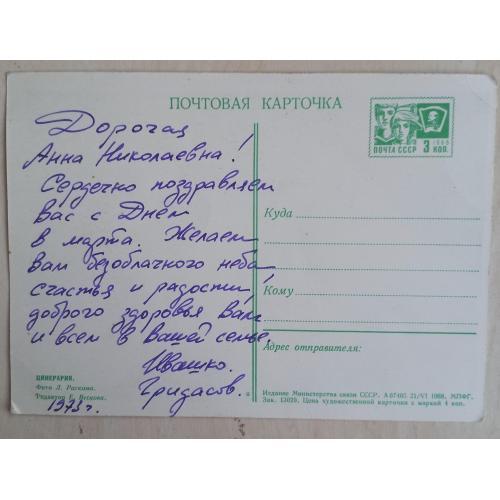 ПОЧТОВАЯ КАРТОЧКА
ПОЧТА СССР 3 КОП.
1966
Дорогая
Анна Николаевна!
Сердечно поздравляем
Вас с Днем
8 марта. Желаем
вам безоблачного неба
счастья и радости!
доброго здоровья Вам
и всем в Вашей семье.
Ивашко.
Гридасов.
1973 г.
Куда
Кому
Адрес отправителя:
ЦИНЕРАРИЯ.
Фото Л. Раскина.
Редактор Е.
Издание Министерства связи СССР. А 07405 21/VI 1968. МПФГ.
Зак. 13029. Цена художественной карточки с маркой 4 коп.